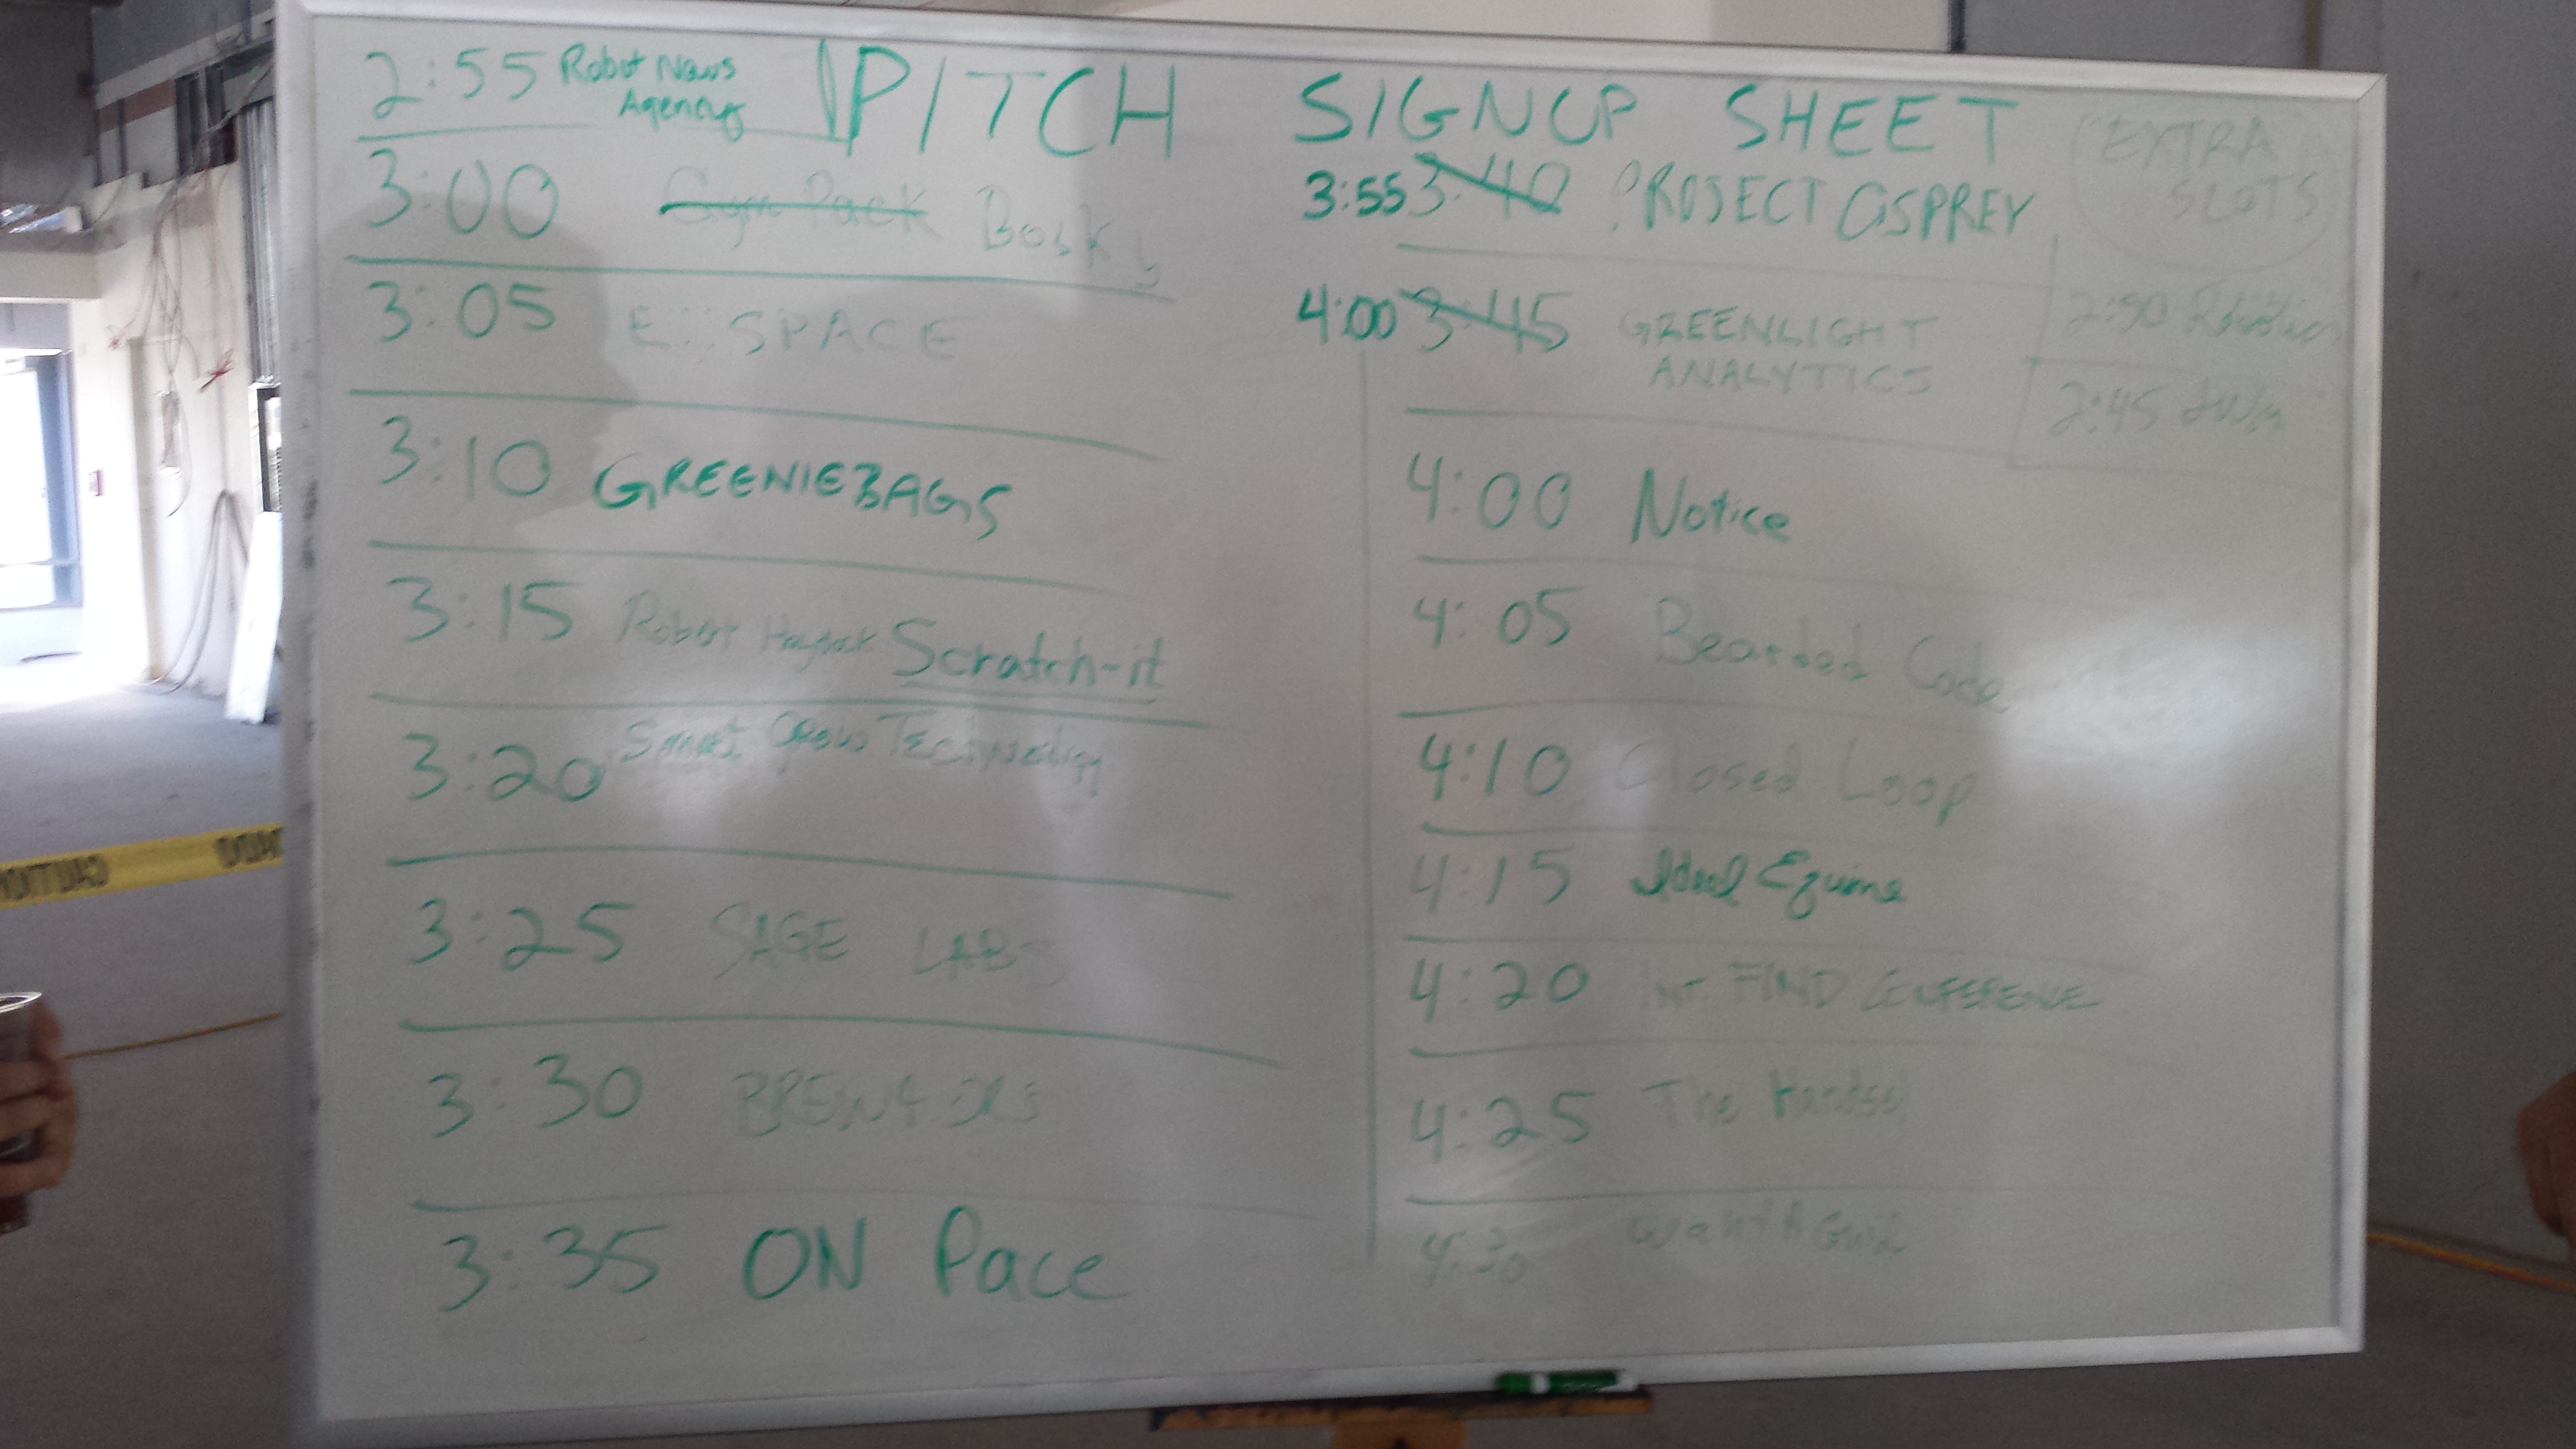 2:55 Robot News
Agency
PITCH SIGNUP SHEET
3:00 Gym Pack Bosky
3:05 E SPACE
3:10 GREENIEBAGS
3:15 Robot Scratch-it
3:20 Smart
3:25 SAGE LABS
3:30
3:35 ON Pace
3:55 3:40 PROJECT OSPREY
4:00 3:45 GREENLIGHT
ANALYTICS
4:00 Notice
4:05 Bearded Code
4:10 Closed Loop
4:15 Ideal Equine
4:20 FIND CONFERENCE
4:25 The
4:30
EXTRA
SLOTS
2:50
2:45
CAUTION